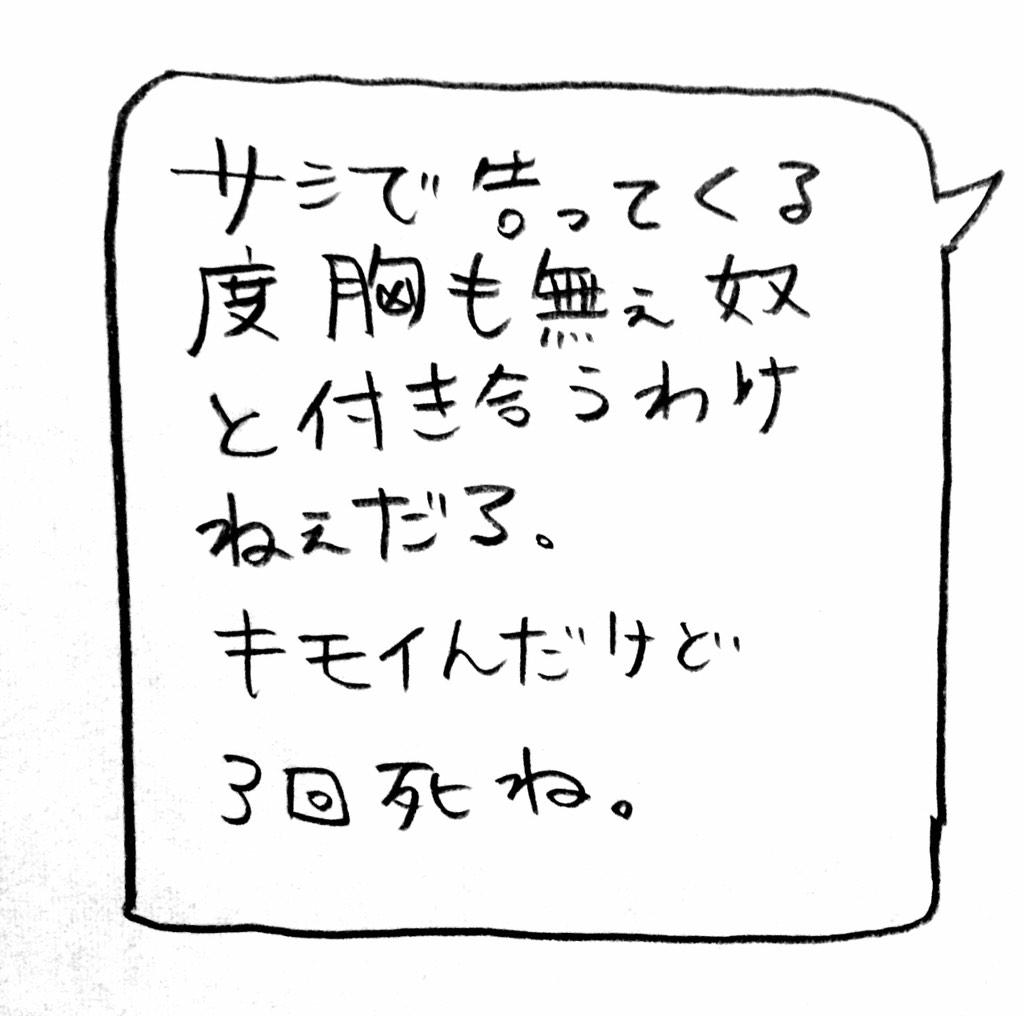 サシで告ってくる
度胸も無ぇ奴
と付き合うわけ
ねぇだろ。
キモイんだけど
3回死ね。